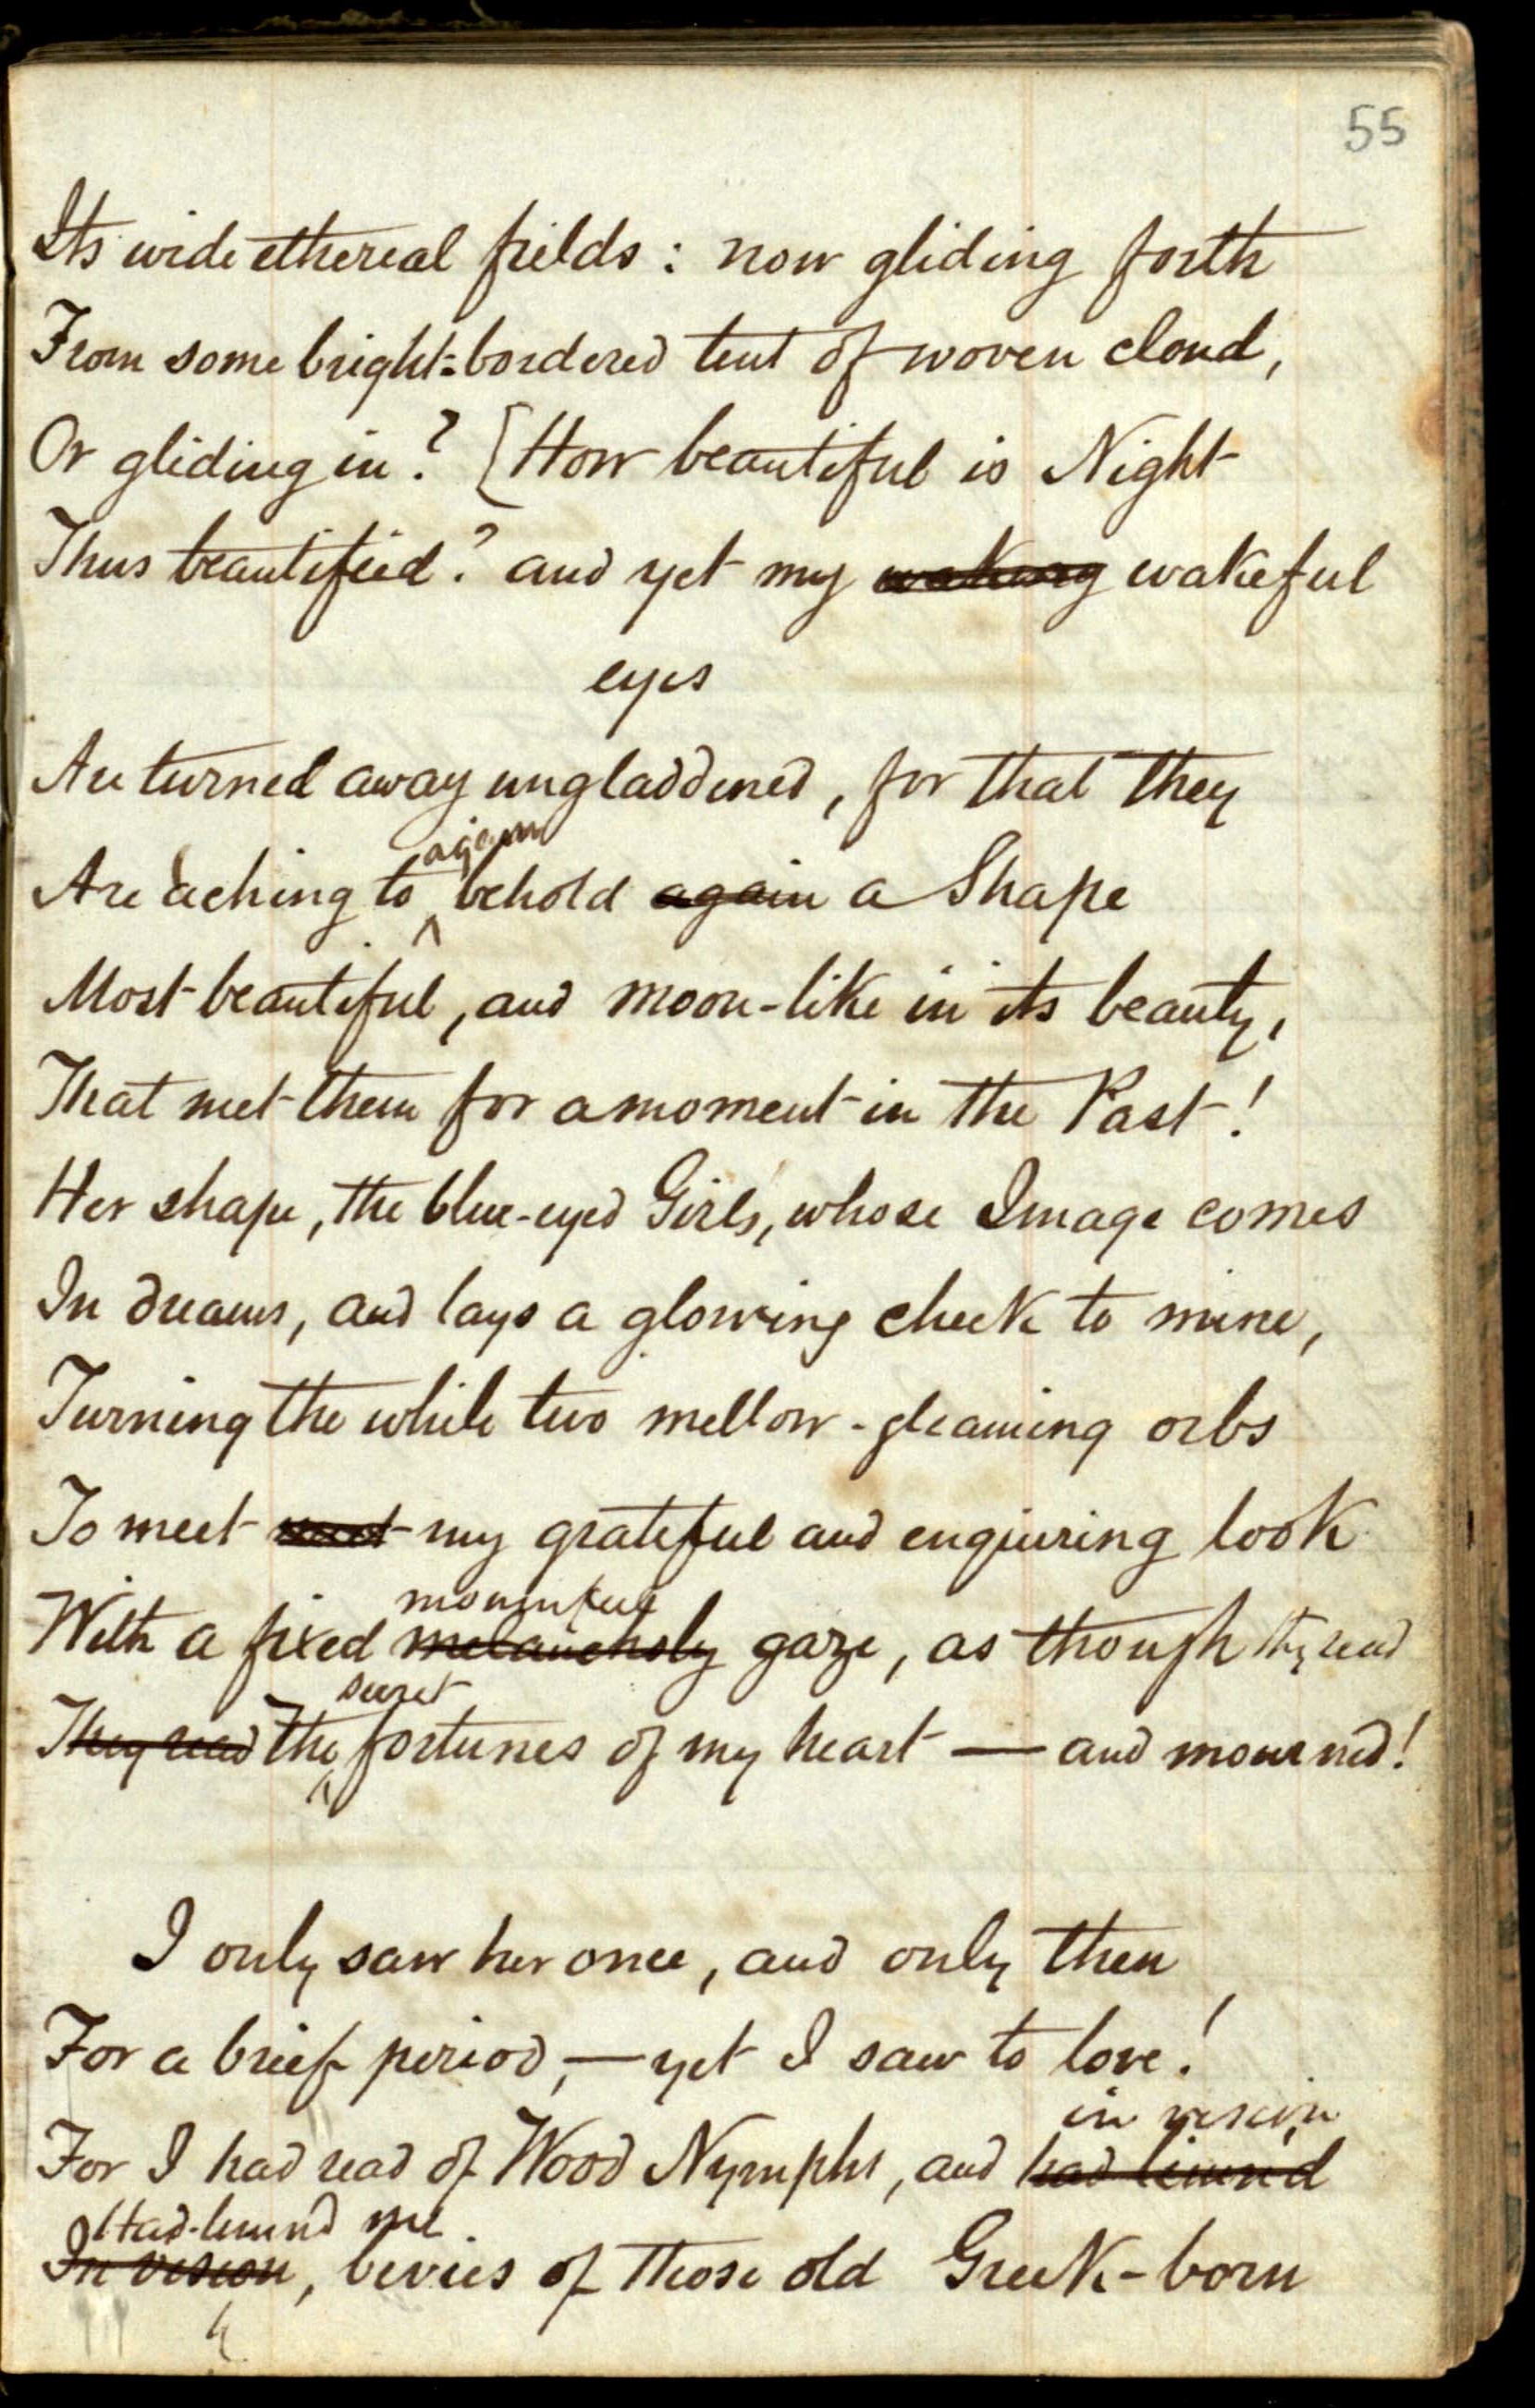 55
Its wide ethereal fields : now gliding forth
From some bright-bordered tent of woven cloud,
Or gliding in? [How beautiful is Night
Thus beautified? and yet my waking wakeful
eyes
Are turned away ungladdened, for that they
again
Are aching to behold again a Shape
Most beautiful, and moon-like in its beauty,
That met them for a moment in the Past!
Her shape, the blue-eyed Girl's, whose Image comes
In dreams, and lays a glowing cheek to mine,
Turning the while two mellow-gleaming orbs
To meet meet my grateful and enquiring look
mournful
With a fixed melancholy gaze, as though they read
secret
They read The fortunes of my heart — and mourned!
I only saw her once, and only then
For a brief period,—yet I saw to love!
in vision
For I had read of Wood Nymphs, and had limn'd
Had limn'd me
In vision, bevies of those old Greek-born